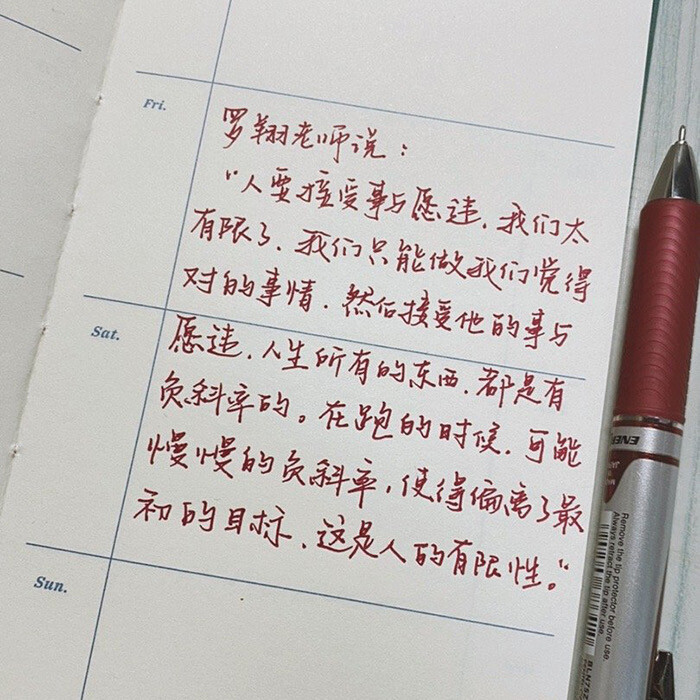 Fri.
罗翔老师说：
“人要接受事与愿违，我们太
有限了，我们只能做我们觉得
对的事情，然后接受他的事与
Sat.
愿违，人生所有的东西，都是有
负斜率的。在跑的时候，可能
慢慢的负斜率，使得偏离了最
初的目标，这是人的有限性。”
Sun.
ENER
Remove the tip protector before use.
Always retract the tip after use.
BLN75